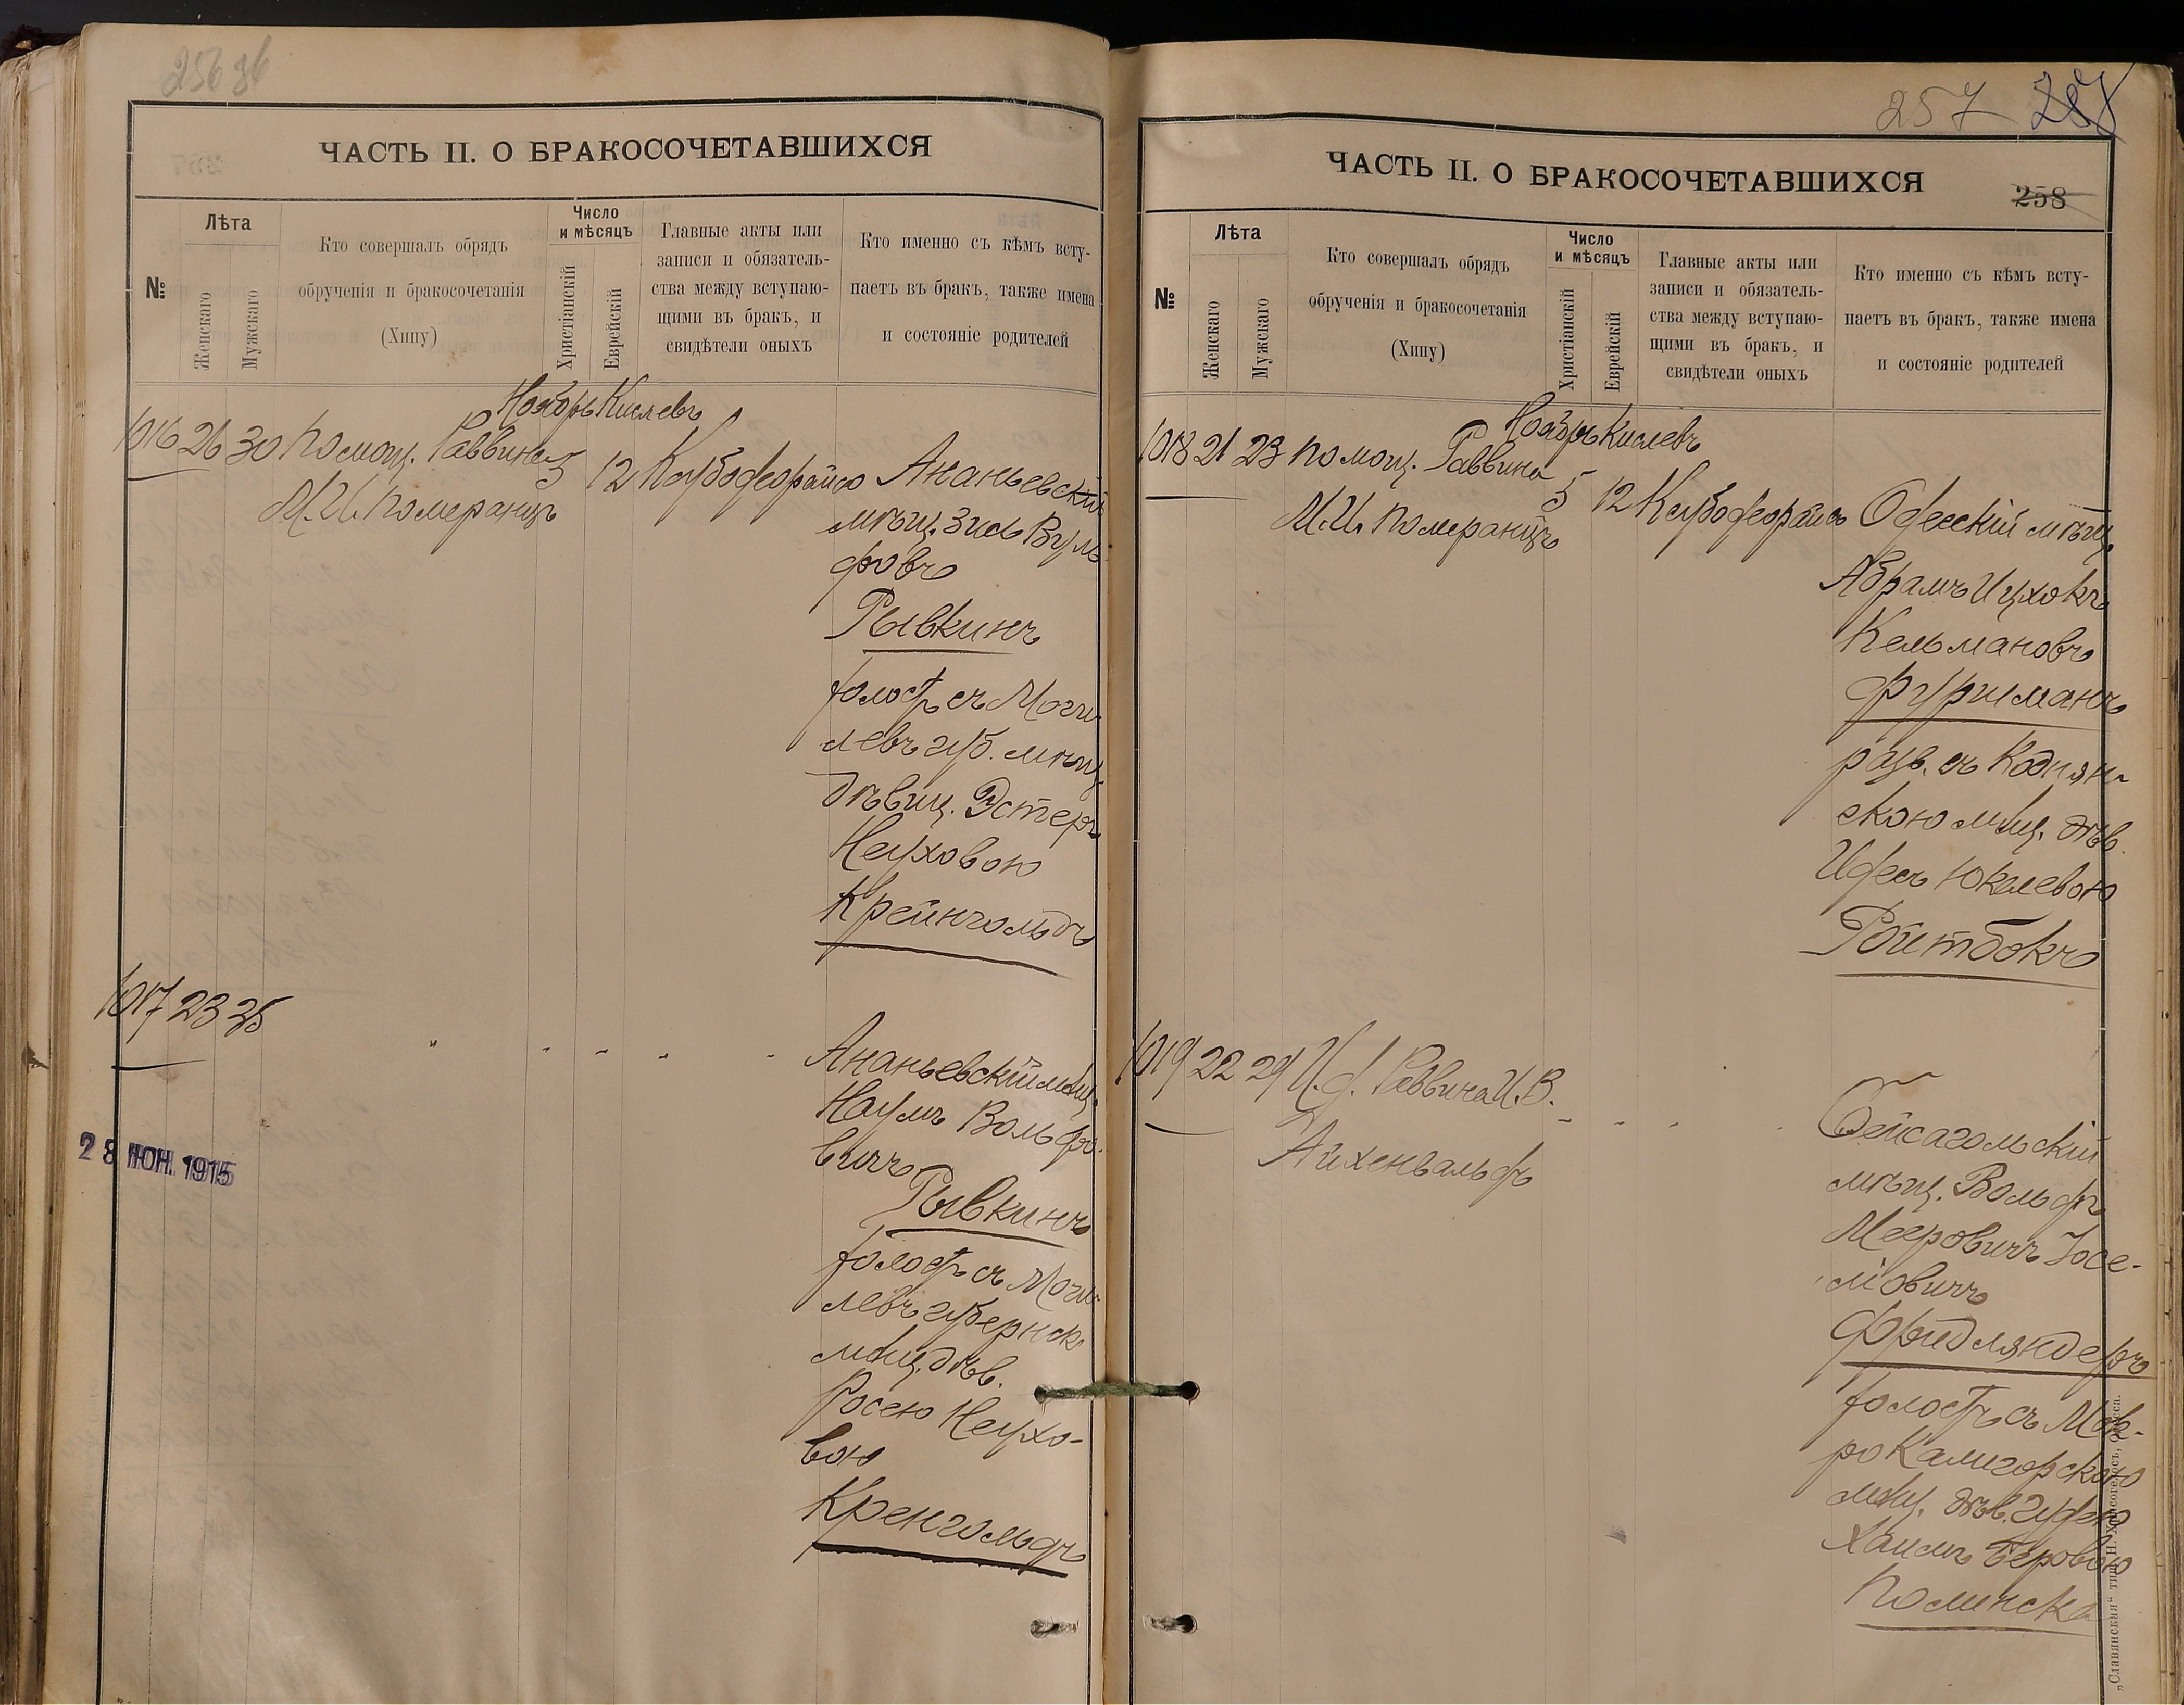 256 об
ЧАСТЬ II. О БРАКОСОЧЕТАВШИХСЯ
№
Лѣта
Женскаго
Мужскаго
Кто совершалъ обрядъ
обрученія и бракосочетанія
(Хипу)
Число
и мѣсяцъ
Христіанскій
Еврейскій
Главные акты или
записи и обязатель-
ства между вступаю-
щими въ бракъ, и
свидѣтели оныхъ
Кто именно съ кѣмъ всту-
паетъ въ бракъ, также имена
и состояніе родителей
Ноябрь Кислевъ
1016 26 30 Помощ. Раввина 5 12 Ананьевскій
М. И. Померанцъ
мѣщ. Зись Вуль
фовъ
Рывкинъ
холостъ съ Моги
левъ губ. мѣщ.
дѣвиц. Эстеръ
Неуховою
Крейнгольдъ
1017 23 25 " - - - -
Ананьевскій мѣщ.
Наумъ Вольфо
вичъ
Рывкинъ
холостъ съ Моги
левъ губернск
мѣщ. дѣв.
Росею Неухо-
вою
Кренгольдъ
28 ІЮН. 1915
257 257
ЧАСТЬ II. О БРАКОСОЧЕТАВШИХСЯ
258
№
Лѣта
Женскаго
Мужскаго
Кто совершалъ обрядъ
обрученія и бракосочетанія
(Хипу)
Число
и мѣсяцъ
Христіанскій
Еврейскій
Главные акты или
записи и обязатель-
ства между вступаю-
щими въ бракъ, и
свидѣтели оныхъ
Кто именно съ кѣмъ всту-
паетъ въ бракъ, также имена
и состояніе родителей
Ноябрь Кислевъ
1018 21 23 помощ. Раввина 5 12 Одесскій мѣщ.
М. И. Померанцъ
Абрамъ Ицхокъ
Кельмановъ
Фурманъ
разв. съ Коднян-
скою мѣщ. дѣв.
Идесъ Юкелевою
Ройтбокъ
1019 22 29 И. д. Раввина И. В. - - -
Айхенвальдъ
мѣщ. Вольфъ
Мееровичъ Іосе-
ліовичъ
Фридляндеръ
холостъ съ Мок-
ро Калигорскою
мѣщ. дѣв.
Хаимъ Беровою
Полинск
„Славянская“ тип. Н. Хрисогелосъ, Одесса.